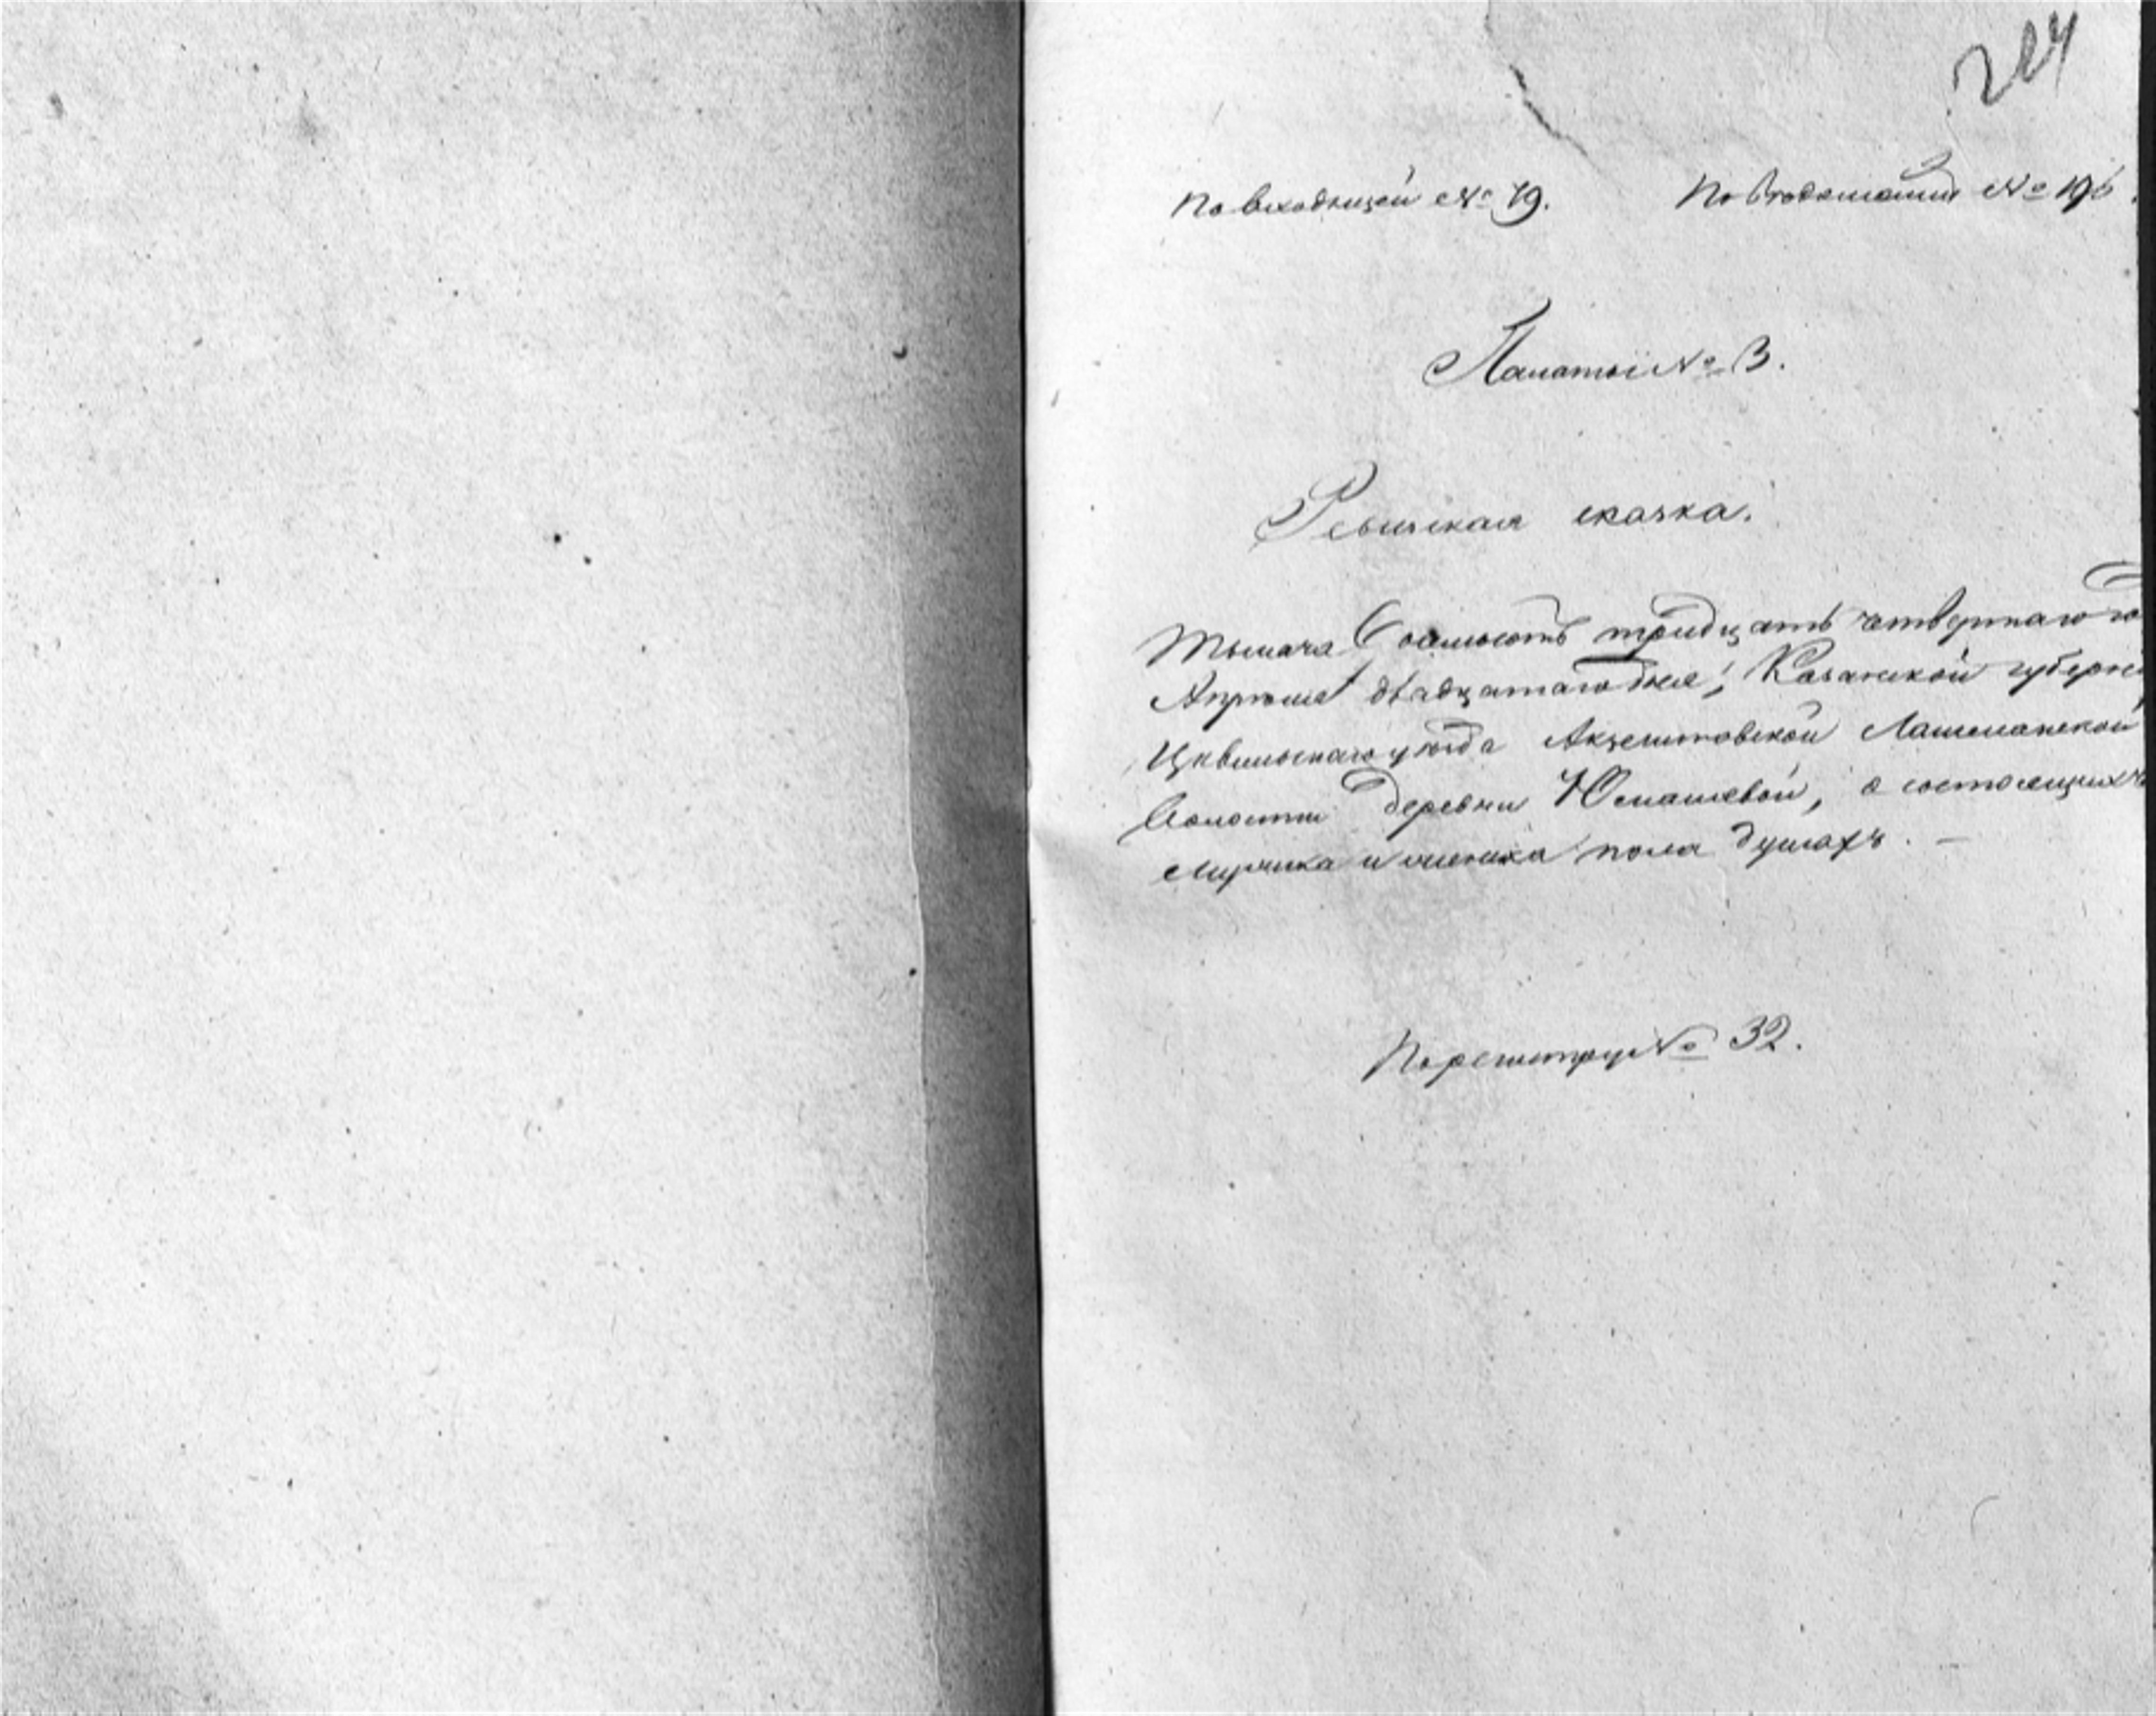 По входящей № 19.
По № 196.
Палаты № 3.
Ревизская сказка.
Тысяча восемьсотъ тридцать четвертаго го
Апреля двадцатаго дня, Казанской губерні
Цивильскаго уезда Лашманской
Волости деревни Юмашевой, о состоящихъ
мужска и женска пола душахъ. —
По регистру № 32.